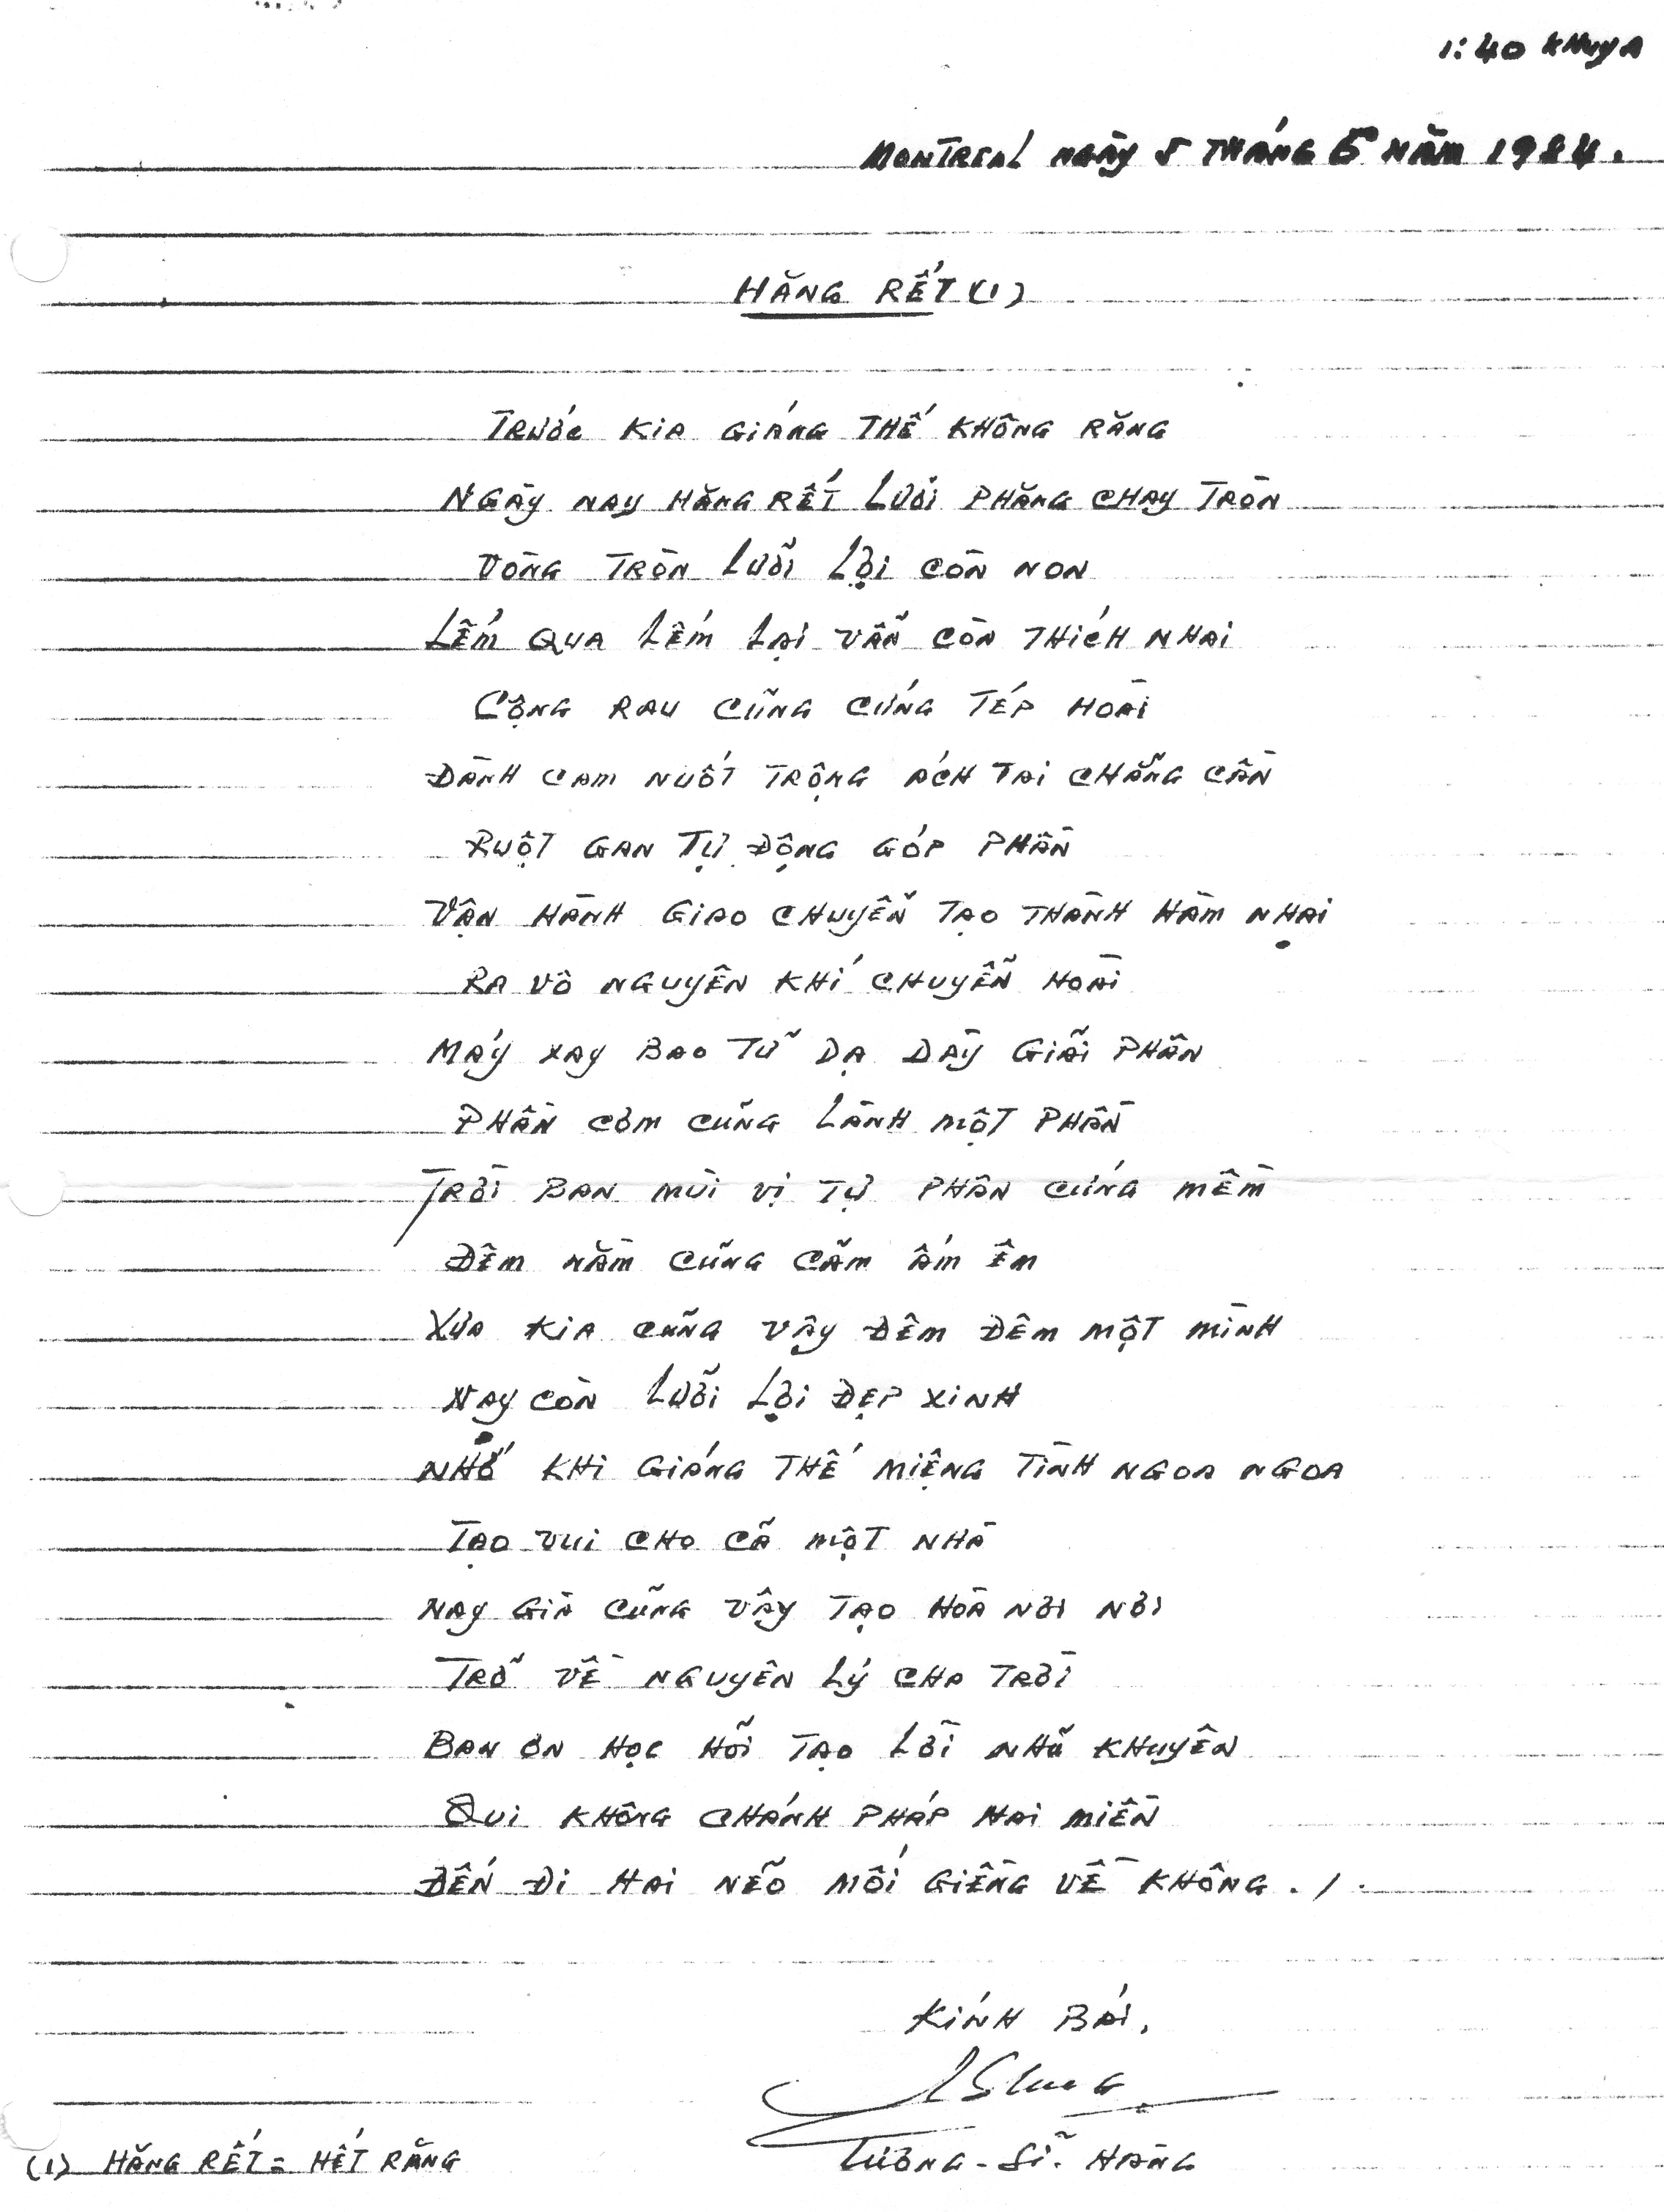 1:40 KHUYA
MONTREAL NGÀY 5 THÁNG 5 NĂM 1984.
HĂNG RẾT (1)
TRƯỚC KIA GIÁNG THẾ KHÔNG RĂNG
NGÀY NAY HĂNG RẾT LƯỠI PHĂNG CHẠY TRÒN
VÒNG TRÒN LƯỠI LỢI CÒN NON
LẾM QUA LẾM LẠI VẪN CÒN THÍCH NHAI
CỘNG RAU CŨNG CÚNG TÉP HOÀI
ĐÀNH CAM NUỐT TRỘNG ÁCH TAI CHẲNG CẦN
RUỘT GAN TỰ ĐỘNG GÓP PHẦN
VẬN HÀNH GIAO CHUYỄN TẠO THÀNH HÀM NHAI
RA VÔ NGUYÊN KHÍ CHUYỄN HOÀI
MÁY XAY BAO TỬ DẠ DÀY GIÃI PHÂN
PHẦN CƠM CŨNG LÀNH MỘT PHẦN
TRỜI BAN MÙI VỊ TỰ PHÂN CỨNG MỀM
ĐÊM NẰM CŨNG CÃM ẤM ÊM
XƯA KIA CŨNG VẬY ĐÊM ĐÊM MỘT MÌNH
NAY CÒN LƯỠI LỢI ĐẸP XINH
NHỚ KHI GIÁNG THẾ MIỆNG TÌNH NGOA NGOA
TẠO VUI CHO CÃ MỘT NHÀ
NAY GIÀ CŨNG VẬY TẠO HOÀ NƠI NƠI
TRỠ VỀ NGUYÊN LÝ CHA TRỜI
BAN ƠN HỌC HÕI TẠO LỜI NHŨ KHUYÊN
QUI KHÔNG CHÁNH PHÁP HAI MIỀN
ĐẾN ĐI HAI NẼO MỐI GIỀNG VỀ KHÔNG ./.
KÍNH BÁI,
LƯƠNG-SĨ-HẰNG
(1) HĂNG RẾT = HẾT RĂNG